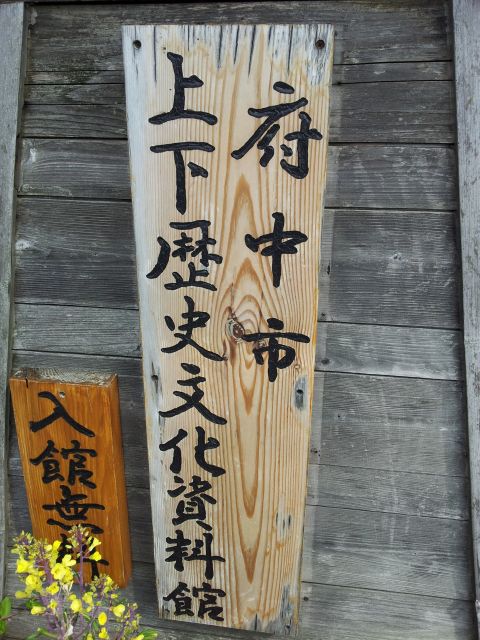 府中市
上下歴史文化資料館
入館無料